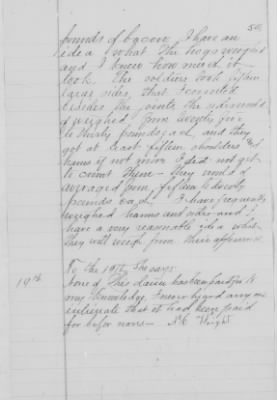 50
pounds of bacon. I have an
idea what the hogs weighed
and I knew how much it
took. The soldiers took fifteen
large sides, that I counted
besides the joints the sides would
of weighed from twenty five
to thirty pounds each, and they
got at least fifteen shoulders &
hams if not more I did not get
to count them - they would of
averaged from fifteen to twenty
pounds each. I have frequently
weighed hams and sides and I
have a very reasonable idea what
they will weigh from their appearance
To the 19th, He says
19th
this claim has been
my knowledge. I never heard any one
intimate that it had been paid
for before now -